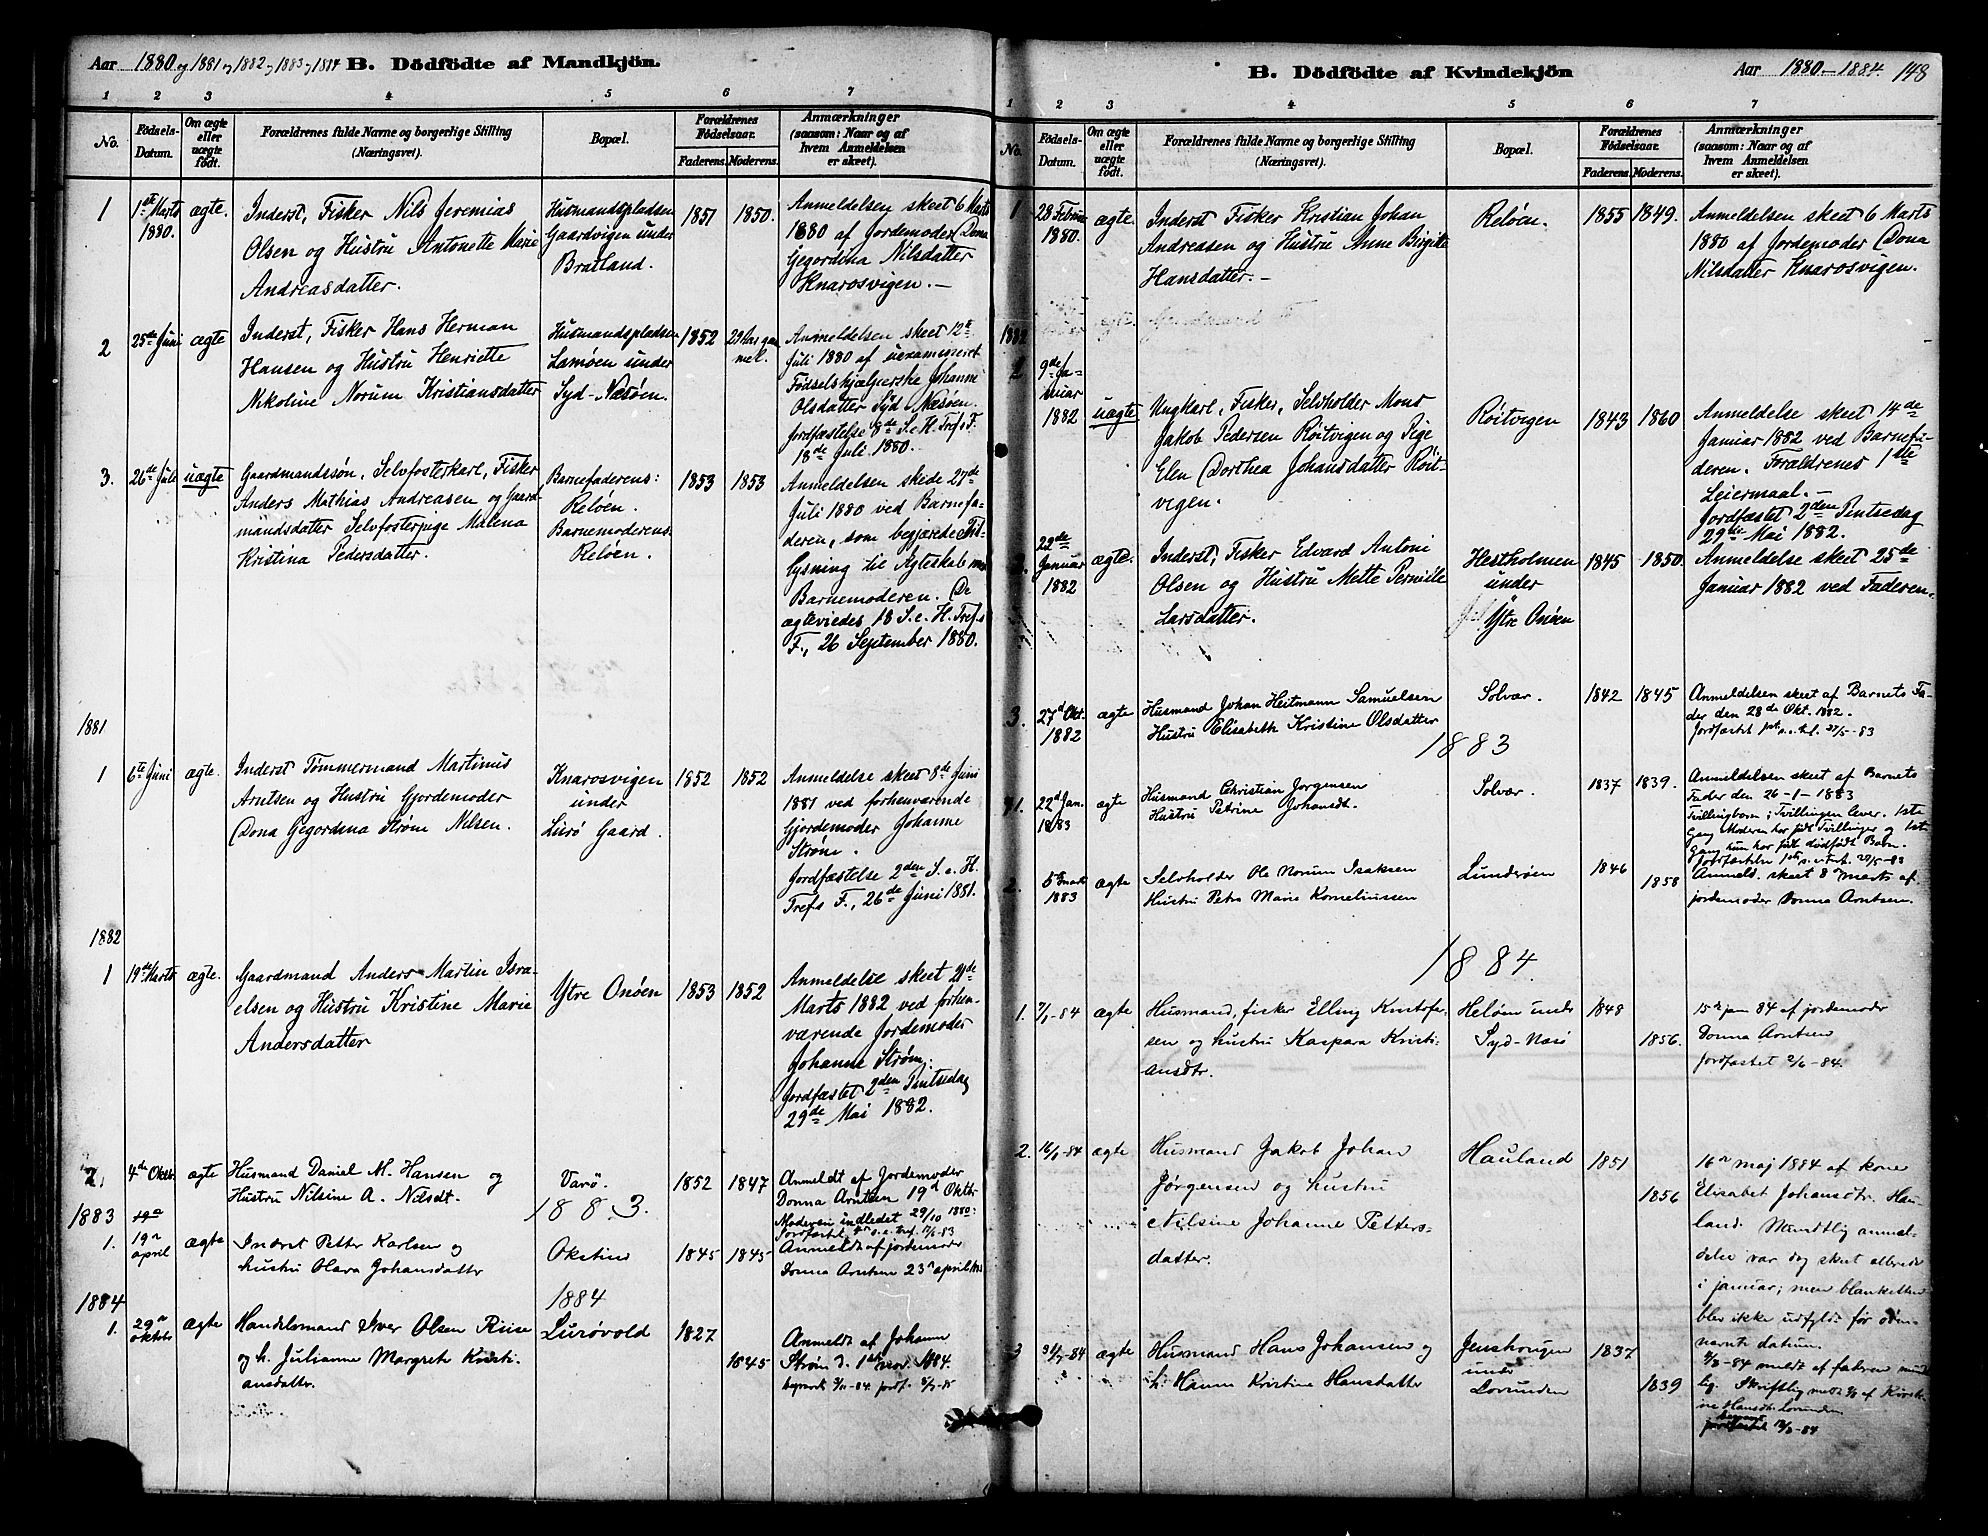 Aar 1880 og 1881 og 1882 og 1883 og 1884 B. Dödfödte af Mandkjön.
1 2 3 4 5 6 7
No.
Födsels-
Datum.
Om ægte
eller
uægte
født.
Forældrenes fulde Navne og borgerlige Stilling
(Næringsvei).
Bopæl.
Forældrenes
Födselsaar.
Faderens. Moderens.
Anmærkninger
(saasom: Naar og af
hvem Anmeldelsen
er skeet).
1
1ste Marts
1880.
ægte.
Inderst, Fisker Nils Jeremias
Olsen og Hustru Antonette Marie
Andreasdatter.
Husmandspladsen
Gaardvigen under
Bratland.
1851 1850.
Anmeldelsen skeet 6 Marts
1880 af Jordemoder Dona
Gegordina Nilsdatter
Knarosvigen.
2
25de Juni
ægte
Inderst, Fisker Hans Herman
Hansen og Hustru Henriette
Nikoline Norum Kristiansdatter
Husmandspladsen
Lamøen under
Syd-Næsøen.
1852
29 Aar gam
mel.
Anmeldelsen skeet 12te
Juli 1880 af uexamineret
Fødselshjælperske Johanne
Olsdatter Syd Næsøen.
Jordfæstelse 8de S. e. H. Tref. F.
18de Juli 1880.
3.
26de Juli
uægte
Gaardmandssøn, Selvfosterkarl, Fisker
Anders Mathias Andreasen og Gaard-
mandsdatter Selvfosterpige Malena
Kristina Pedersdatter.
Barnefaderens:
Reløen.
Barnemoderens
Reløen.
1853 1853
Anmeldelsen skede 27de
Juli 1880 ved Barnefa-
deren, som begjærede Til-
lysning til Ægteskab med
Barnemoderen. De
ægteviedes 18 S. e. H. Tref.s
F., 26 September 1880.
1881
1
6te Juni
ægte.
Inderst Tømmermand Martinus
Arntsen og Hustru Gjordemoder
Dona Gegordina Strøm Nilsen.
Knarosvigen
under
Lurø Gaard.
1852 1852
Anmeldelse skeet 8de Juni
1881 ved forhenværende
Gjordemoder Johanne
Strøm.
Jordfæstelse 2den S. e. H.
Trefs F., 26de Juni 1881.
1882
1
19de Marts
ægte.
Gaardmand Anders Martin Isra-
elsen og Hustru Kristine Marie
Andersdatter
Ytre Onøen
1853 1852
Anmeldelse skeet 21de
Marts 1882 ved forhen-
værende Jordemoder
Johanne Strøm;
Jordfæstet 2den Pintsedag
29de Mai 1882.
2.
4de Oktbr.
ægte
Husmand Daniel M. Hansen og
Hustru Nilsine A. Nilsdt.
Varø.
1852 1847
Anmeldt af Jordemoder
Donna Arntsen 19d Oktbr
Moderen indledet 29/10 1880:
1883
1883.
1.
19n
april
ægte
Inderst Petter Karlsen og
hustru Olava Johansdatter
1845 1845
Anmeldt af jordemoder
Donna Arntsen 23n april
1884
1884
1.
29n
oktbr
ægte
Handelsmand Iver Olsen Riise
og h. Julianne Margrete Kristi-
ansdatter.
Lurøvold
1827
1845
Anmeldt af Johanne
Strøm d. 1ste nov. 1884.
B. Dödfödte af Kvindekjön Aar 1880-1884. 148
1 2 3 4 5 6 7
No.
Födsels-
Datum.
Om ægte
eller
uægte
født.
Forældrenes fulde Navne og borgerlige Stilling
(Næringsvei).
Bopæl.
Forældrenes
Födselsaar.
Faderens. Moderens.
Anmærkninger
(saasom: Naar og af
hvem Anmeldelsen
er skeet).
1
28 Februar
1880.
ægte.
Inderst Fisker Kristian Johan
Andreasen og Hustru Anne Birgitte
Hansdatter.
Reløen.
1855 1849.
Anmeldelsen skeet 6 Marts
1880 af Jordemoder Dona
Nilsdatter Knarosvigen.
1882
9de Ja-
nuar
1882
uægte
Ungkarl, Fisker, Selvholder Mons
Jakob Pedersen Röitvigen og Pige
Elen Dorthea Johansdatter Röit-
vigen.
Röitvigen
1843 1860
Anmeldelse skeet 14de
Januar 1882 ved Barnefa-
deren. Forældrenes 1ste
Leiermaal.
Jordfæstet 2den Pintsedag
29de Mai 1882.
Januar
1882
ægte.
Inderst, Fisker Edvard Antoni
Olsen og Hustru Mette Pernille
Larsdatter.
Hestholmen
under
Ytre Onøen
1845 1850
Anmeldelse skeet 25de
Januar 1882 ved Faderen.
3.
27d Okt.
1882
ægte
Husmand Johan Heitmann Samuelsen
Hustru Elisabeth Kristine Olsdatter
Solvær.
1842 1845
Anmeldelsen skeet af Barnets Fa-
der den 28de Okt. 1882.
1883
1.
22d Jan.
1883
ægte
Husmand Christian Jørgensen
Hustru Petrine Johansdt.
Solvær.
1837 1839.
Anmeldelsen skeet af Barnets
Fader den 26-1-1883
Tvillingbarn; Tvillingen lever. 1ste
Gang Moderen har født Tvillinger og 1ste
Gang hun har født dødfødt Barn.
2.
5 marts
1883
ægte
Selvholder Ole Norum Isaksen
Hustru Petra Marie Korneliussen
Lunderøen
1846
1858
Anmeld. skeet 8n marts af
jordemoder Donna Arntsen.
1884.
1.
7/1-84
ægte
Husmand, fisker Elling Kristofer-
sen og hustru Kaspara Kristi-
ansdtr.
Heløen under
Syd-Næsø
1848
1856.
15n jan 84 af jordemoder
Donna Arntsen
jordfæstet 2/6-84.
2.
16/1-84
ægte
Husmand Jakob Johan
Jørgensen og hustru
Nilsine Johanne Petters-
datter.
Hauland
1851
1856
16n maj 1884 af kone
Elisabet Johansdtr. Hau-
land. Mundtlig anmel-
delse var dog skeet allerede
i januar; men blanketten
blev ikke udfyldt før oven-
nævnte datum.
3
31/7-84
ægte
Husmand Hans Johansen og
h. Hanna Kristine Hansdatter
Jenshougen
under
Lovunden
1837
1839
9/8-84 meldt af faderen mundt
lig. Skriftlig meldt af Kirsti-
ne Hansdtr. Lovunden